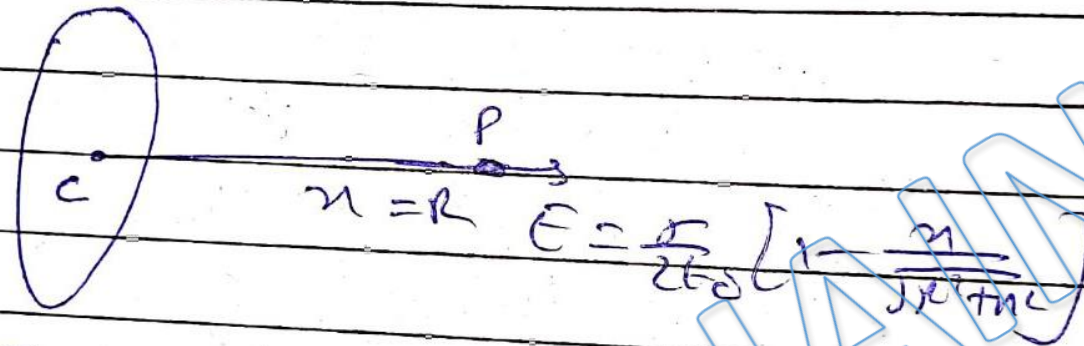 P
C
x = R
E = σ/2ε₀ [1 - x/√R²+x²]